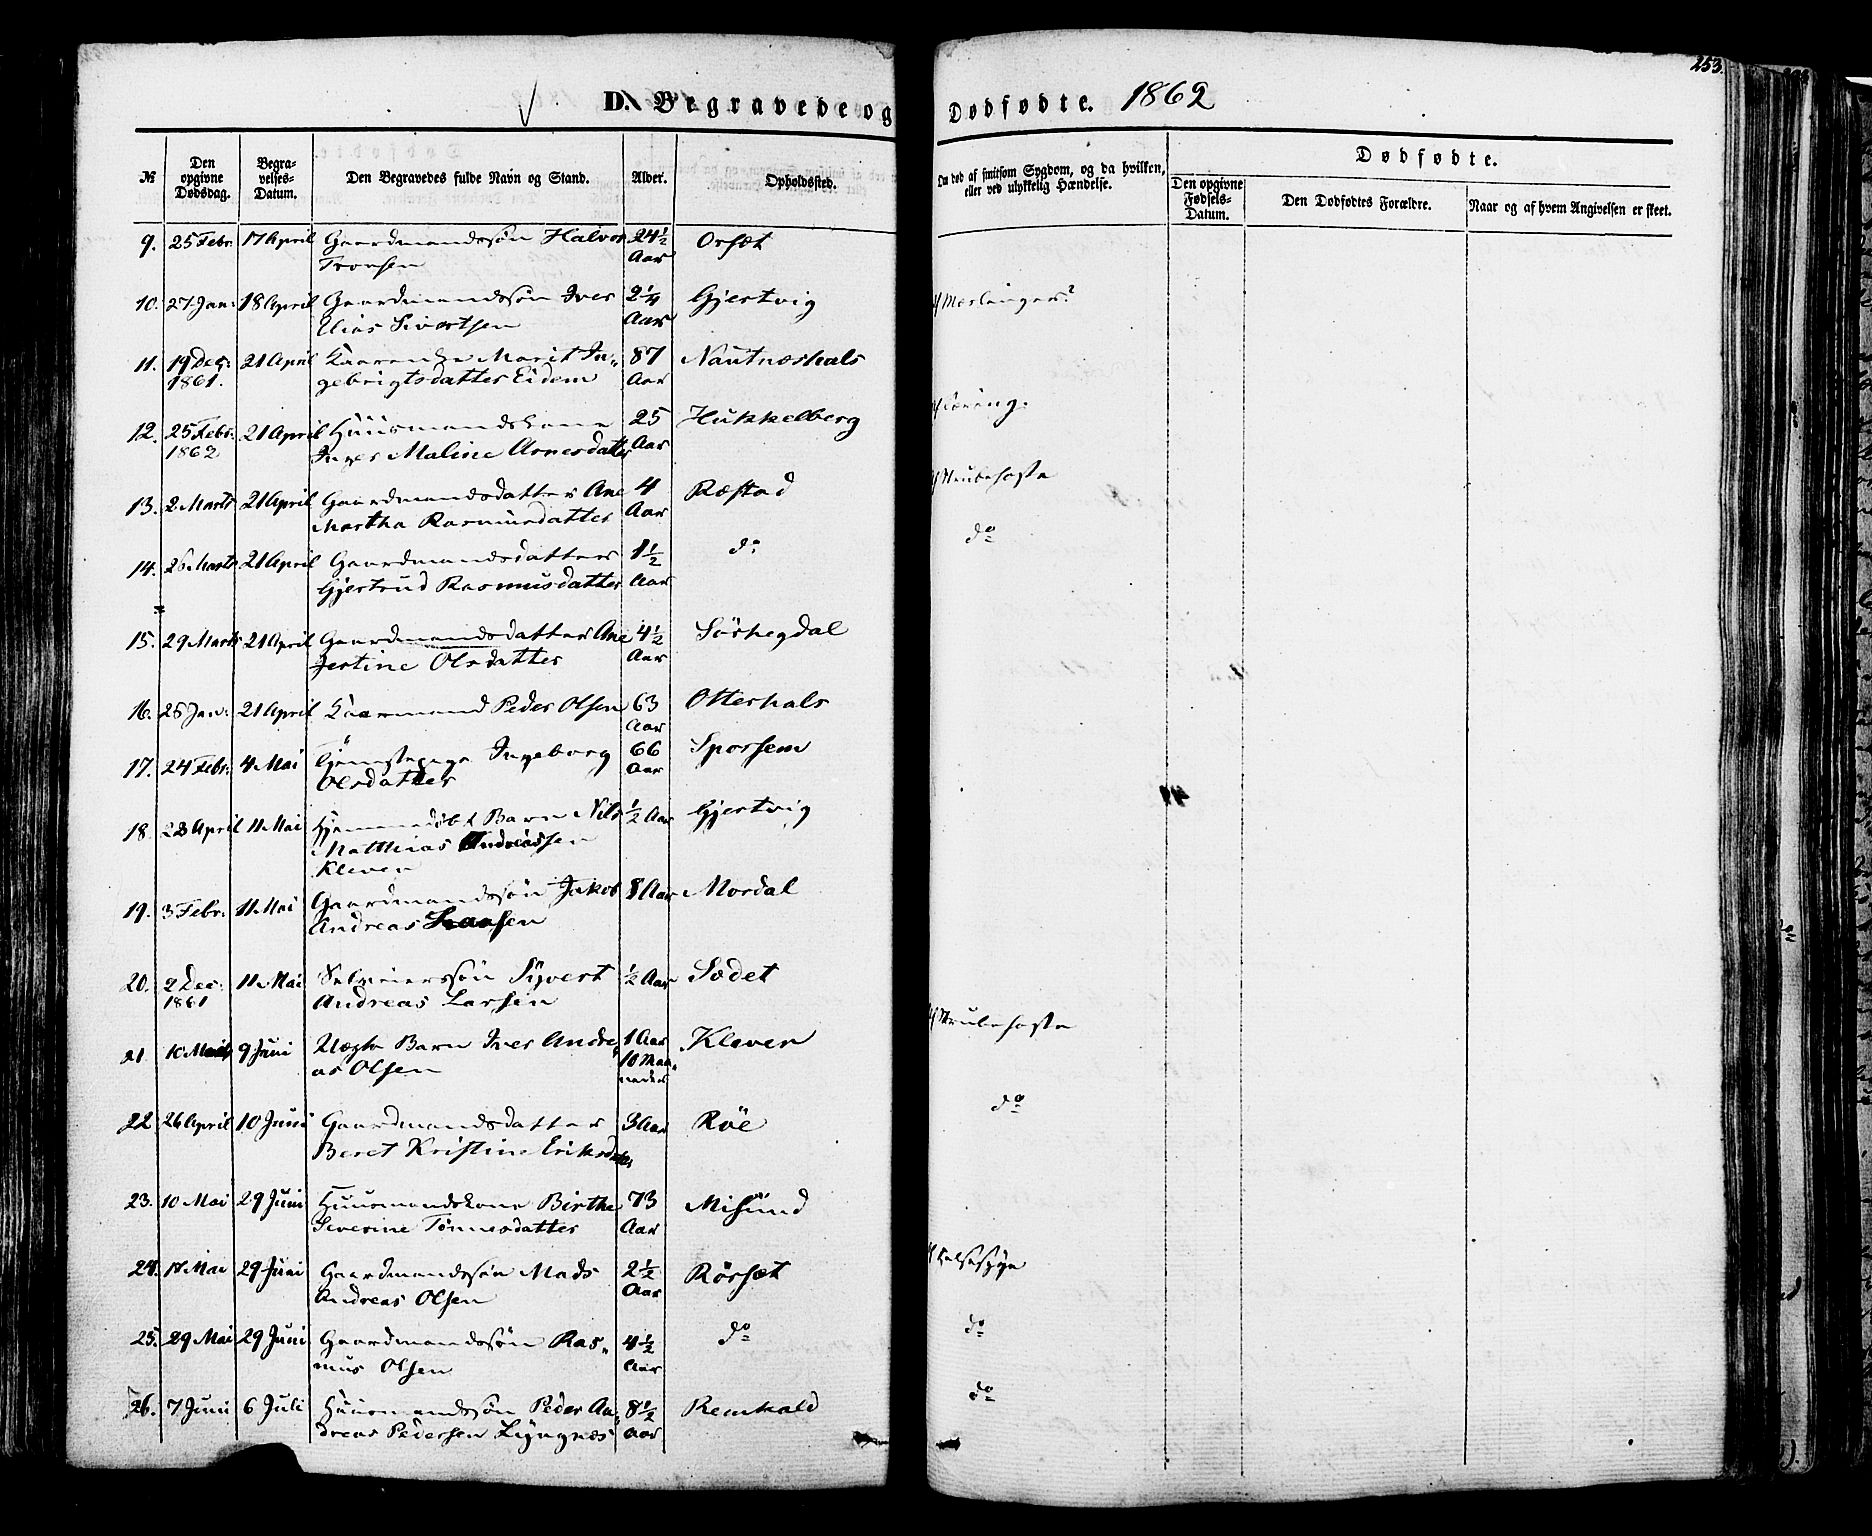 253.
D. Begravede og Dødfødte. 1862
№
Den opgivne Dødsdag.
Begravelses-Datum.
Den Begravedes fulde Navn og Stand.
Alder.
Opholdssted.
Om død af smitsom Sygdom, og da hvilken, eller ved ulykkelig Hændelse.
Dødfødte.
Den opgivne Fødsels-Datum.
Den Dødfødtes Forældre.
Naar og af hvem Angivelsen er skeet.
9. 25 Febr: 17 April Gaardmandssøn Halvor 24½ Orset
Tronsen Aar
10. 27 Jan: 18 April Gaardmandssøn Iver 2¼ Gjertvig
Elias Sivertsen Aar
11. 19 Dec: 21 April Marit In- 87 Nautneshals
1861. gebrigtsdatter Eidem Aar
12. 25 Febr: 21 April Huusmandskone 25 Hukkelberg
1862 Inger Maline Arnesdatter Aar
13. 2 Marts 21 April Gaardmandsdatter Ane 4 Ræstad Strubehoste
Martha Rasmusdatter Aar
14. 26 Marts 21 April Gaardmandsdatter 1½ do do
Gjertrud Rasmusdatter Aar
15. 29 Marts 21 April Gaardmandsdatter Ane 4½ Sörhegdal
Jertine Olsdatter Aar
16. 28 Jan: 21 April Kaarmand Peder Olsen 63 Otterhals
Aar
17. 24 Febr: 4 Mai Ingeborg 66 Sporsem
Olsdatter Aar
18. 28 April 11 Mai Hjemmedøbt Barn Nils ½ Aar Gjertvig
Matthias Andreassen
Kleven
19. 3 Febr: 11 Mai Gaardmandssøn Jakob 8 Aar Mordal
Andreas
20. 2 Dec: 11 Mai Selveierssøn Syvert ½ Aar Sædet
1861 Andreas Larsen
21. 9 Juni Uægte Barn Iver Andre- 1 Aar Kleven Strubehoste
as Olsen 10 Maaneder
22. 26 April 10 Juni Gaardmandsdatter 3 Aar Röe do
Beret Kristine Eriksdatter
23. 10 Mai 29 Juni Huusmandskone Birthe 73 Misund
Severine Tönnesdatter Aar
24. 17 Mai 29 Juni Gaardmandssøn Mads 2½ Rörset Halssyge
Andreas Olsen Aar
25. 29 Mai 29 Juni Gaardmandssøn Ras- 4½ do do
mus Olsen Aar
26. 7 Juni 6 Juli Huusmandssøn Peder An- 8½ Remhald do
dreas Pedersen Lyngnæs Aar